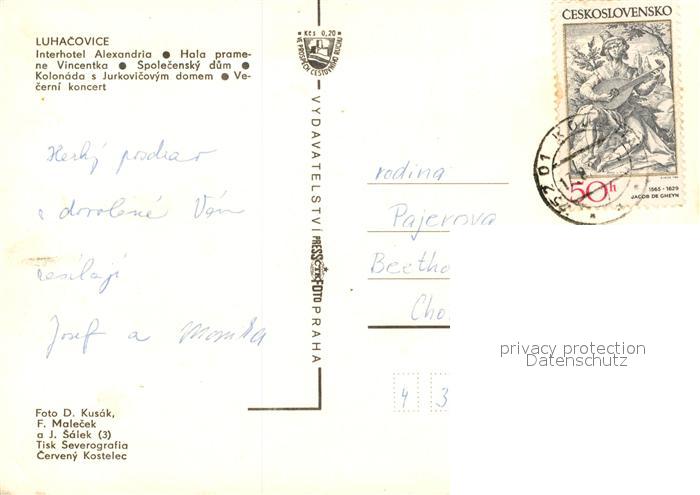 LUHAČOVICE
Interhotel Alexandria ● Hala prame-
ne Vincentka ● Společenský dům ●
Kolonáda s Jurkovičovým domem ● Ve-
černí koncert
Kčs 0,20
VE PROSPĚCH CESTOVNÍHO RUCHU
ČESKOSLOVENSKO
50h
1565-1629
JACOB DE GHEYN
357 01
VYDAVATELSTVÍ PRESSFOTO PRAHA
ČTK
Hezký pozdrav
z dovolené Vám
zasílají
Josef a Monika
rodina
Pajerova
Beetho
Cho
4 3
privacy protection
Datenschutz
Foto D. Kusák,
F. Maleček
a J. Šálek (3)
Tisk Severografia
Červený Kostelec